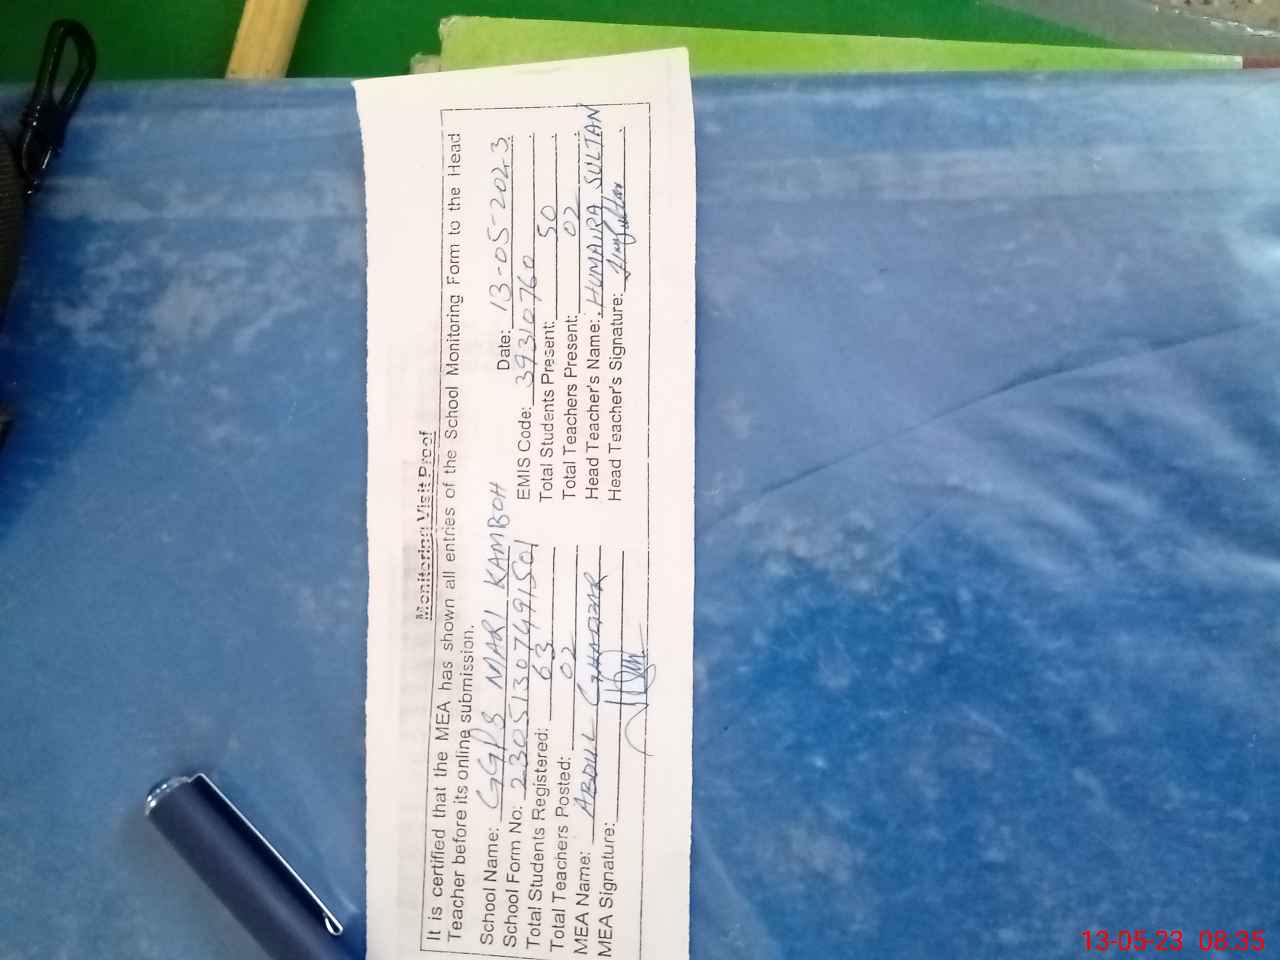 Monitoring Visit Proof
It is certified that the MEA has shown all entries of the School Monitoring Form to the Head
Teacher before its online submission.
School Name: GGPS MARI KAMBOH Date: 13-05-2023
School Form No: 23051307491501 EMIS Code: 39310760
Total Students Registered: 63 Total Students Present: 50
Total Teachers Posted: 02 Total Teachers Present: 02
MEA Name: ABDUL GHAFFAR Head Teacher's Name: HUMAIRA SULTAN
MEA Signature: Head Teacher's Signature:
13-05-23 08:35